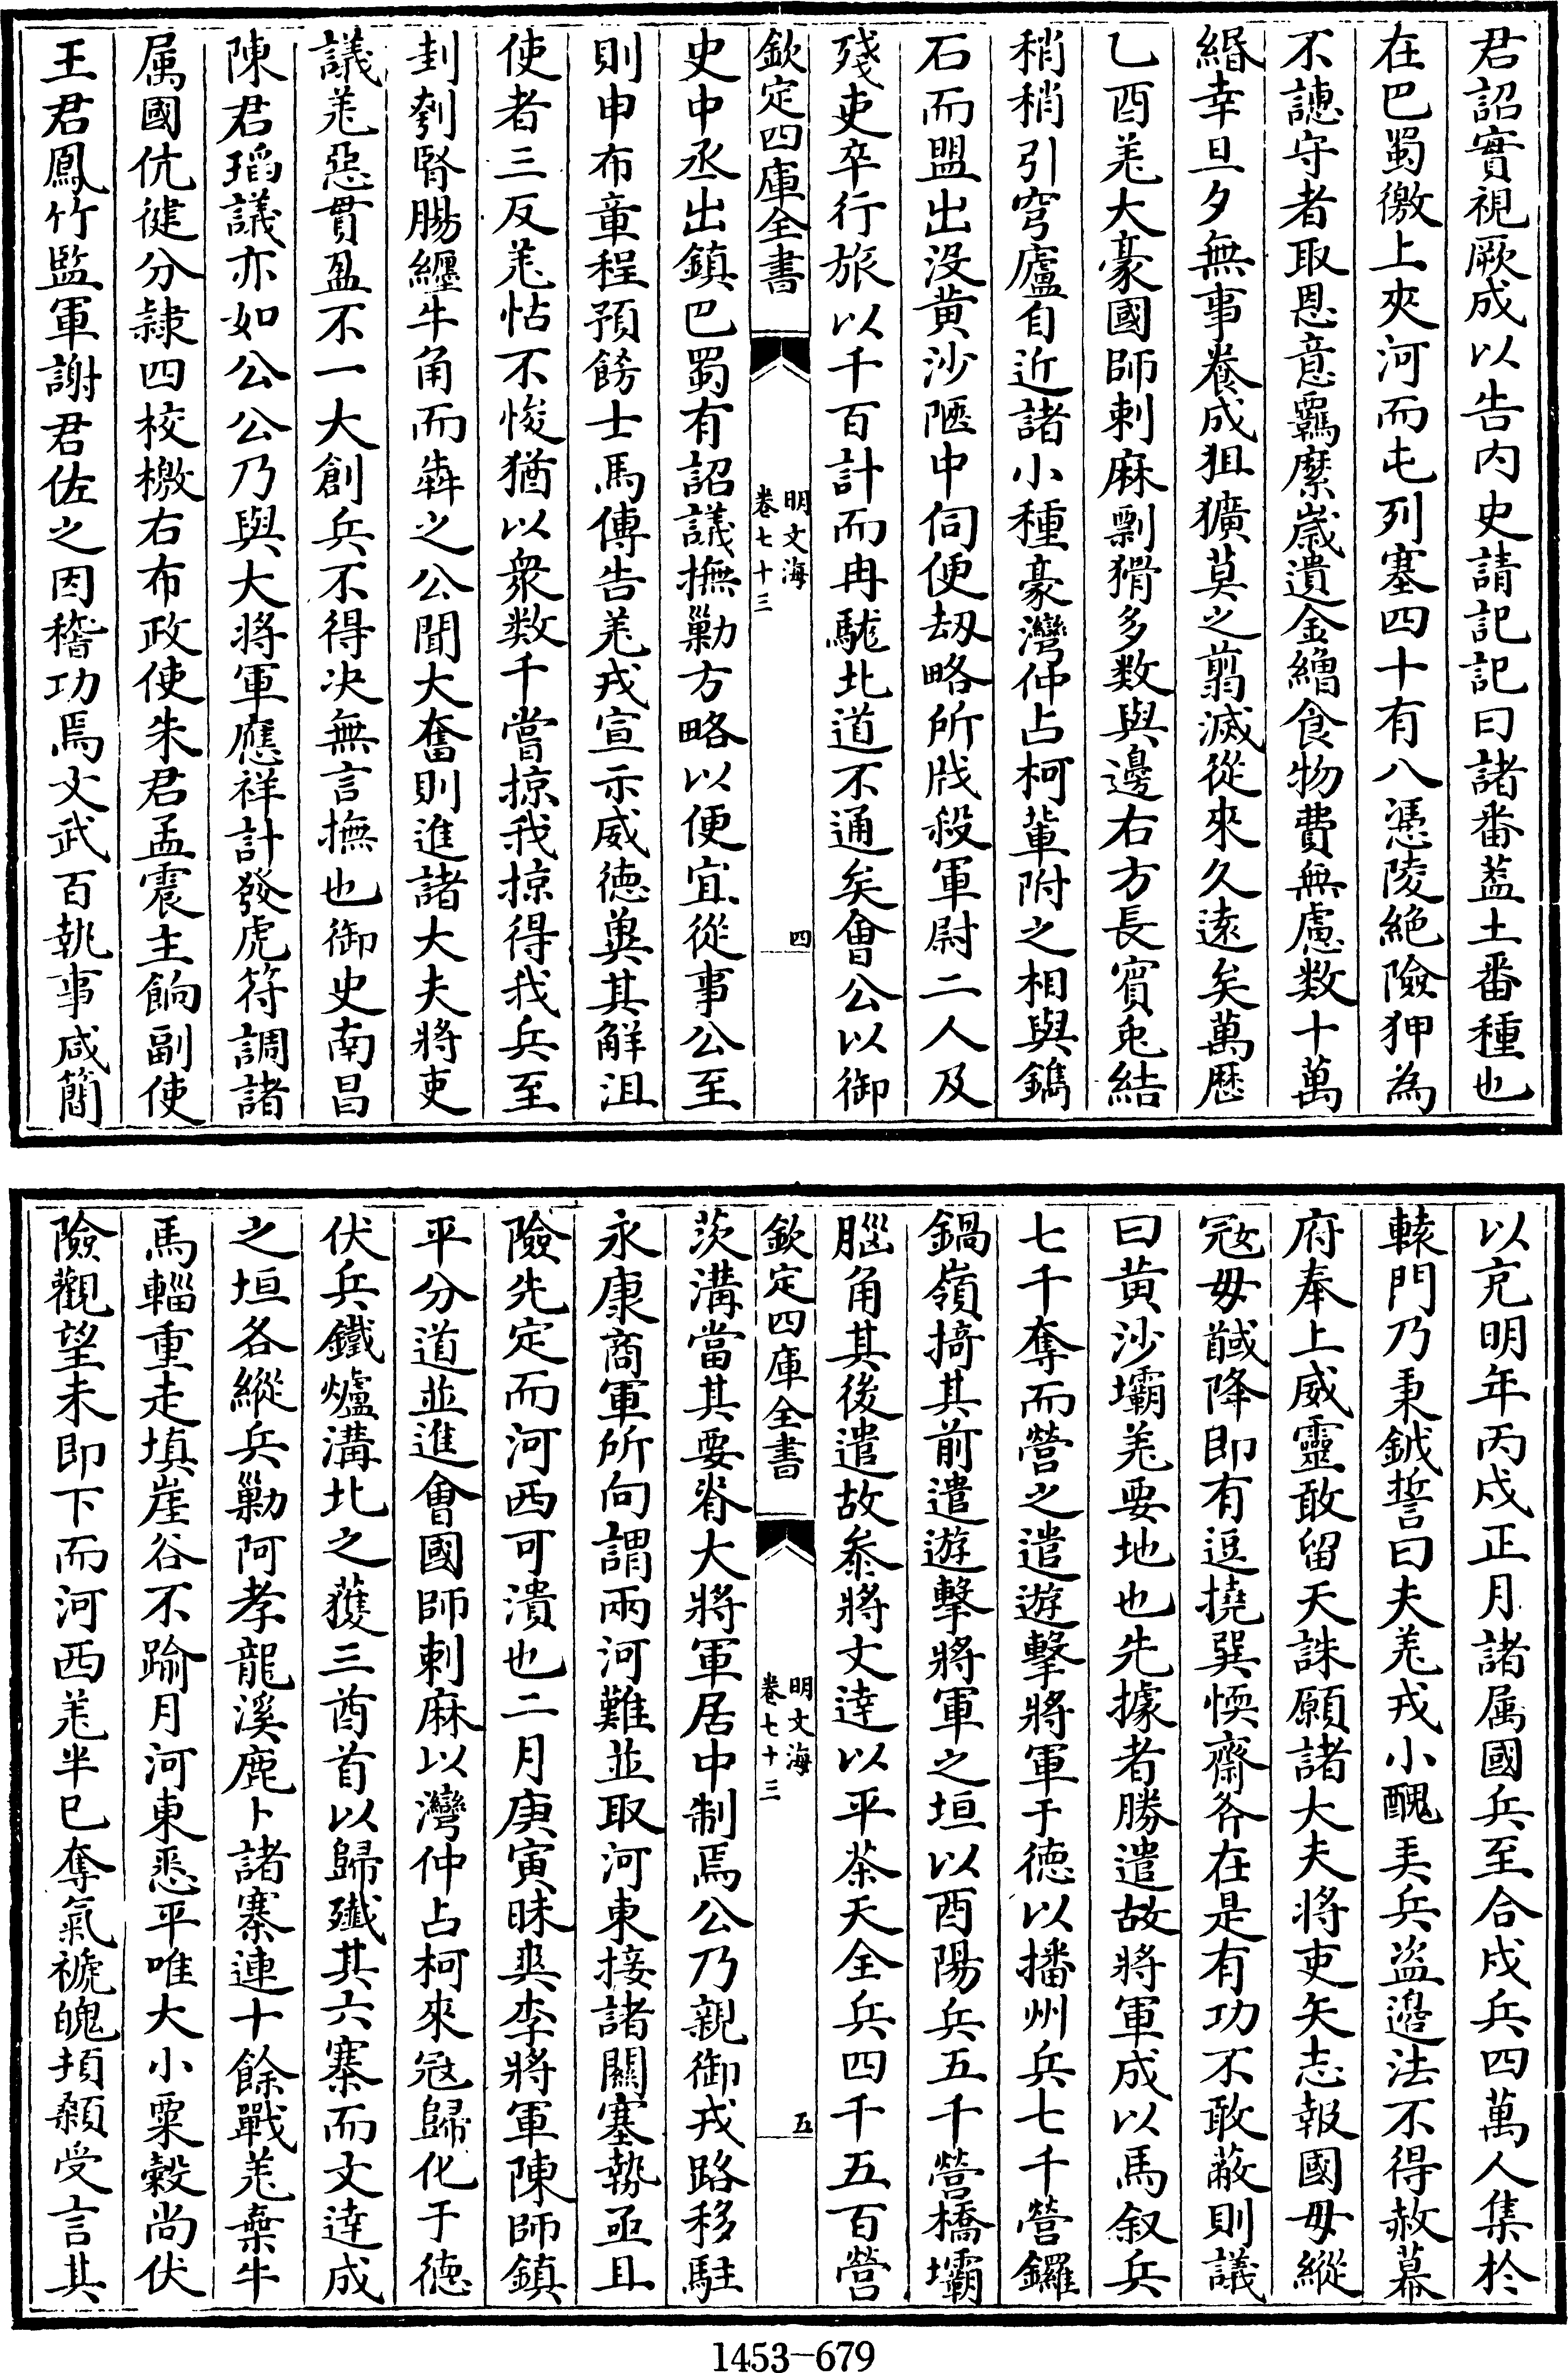 君詔實視厥成以告內史請記記曰諸番葢土番種也
在巴蜀徼上夾河而屯列塞四十有八憑陵絶險狎為
不譓守者取恩意羈縻歳遺金繒食物費無慮数十萬
緡幸旦夕無事養成狙獷莫之翦滅從來久逺矣萬歴
乙酉羌大豪國師剌麻剽猾多数與邊右方長賔兎結
稍稍引穹廬自近諸小種豪灣仲占柯輩附之相與鐫
石而盟出沒黄沙陿中伺便刼略所戕殺軍尉二人及
殘吏卒行旅以千百計而冉駹北道不通矣會公以御
欽定四庫全書
明文海
卷七十三
四
史中丞出鎮巴蜀有詔議撫勦方略以便宜從事公至
則申布章程預餝士馬傳告羌戎宣示威徳兾其解沮
使者三反羌怙不悛猶以衆数千嘗掠我掠得我兵至
刲刳腎腸纏牛角而犇之公聞大奮則進諸大夫將吏
議羌惡貫盈不一大創兵不得决無言撫也御史南昌
陳君瑫議亦如公公乃與大將軍應祥計發虎符調諸
属國伉健分隷四校檄右布政使朱君孟震主餉副使
王君鳳竹監軍謝君佐之因稽功焉文武百執事咸簡
以充明年丙戍正月諸属國兵至合戍兵四萬人集於
轅門乃秉鉞誓曰夫羌戎小醜弄兵盗邉法不得赦幕
府奉上威靈敢留天誅願諸大夫將吏矢志報國毋縱
冦毋馘降即有逗撓巽愞齋斧在是有功不敢蔽則議
曰黄沙壩羌要地也先據者勝遣故將軍成以馬叙兵
七千奪而營之遣遊擊將軍于徳以播州兵七千營鑼
鍋嶺掎其前遣遊擊將軍之垣以酉陽兵五千營橋壩
腦角其後遣故叅將文逹以平茶天全兵四千五百營
欽定四庫全書
明文海
卷七十三
五
茨溝當其要脊大將軍居中制焉公乃親御戎路移駐
永康商軍所向謂兩河難並取河東接諸關塞勢亟且
險先定而河西可潰也二月庚寅昧爽李將軍陳師鎮
平分道並進會國師剌麻以灣仲占柯來冦歸化于徳
伏兵鐵爐溝北之獲三酋首以歸殱其六寨而文逹成
之垣各縱兵勦阿孝龍溪鹿卜諸寨連十餘戰羌棄牛
馬輜重走填崖谷不踰月河東悉平唯大小粟榖尚伏
險觀望未即下而河西羌半已奪氣褫魄損顙受言其
1453-679